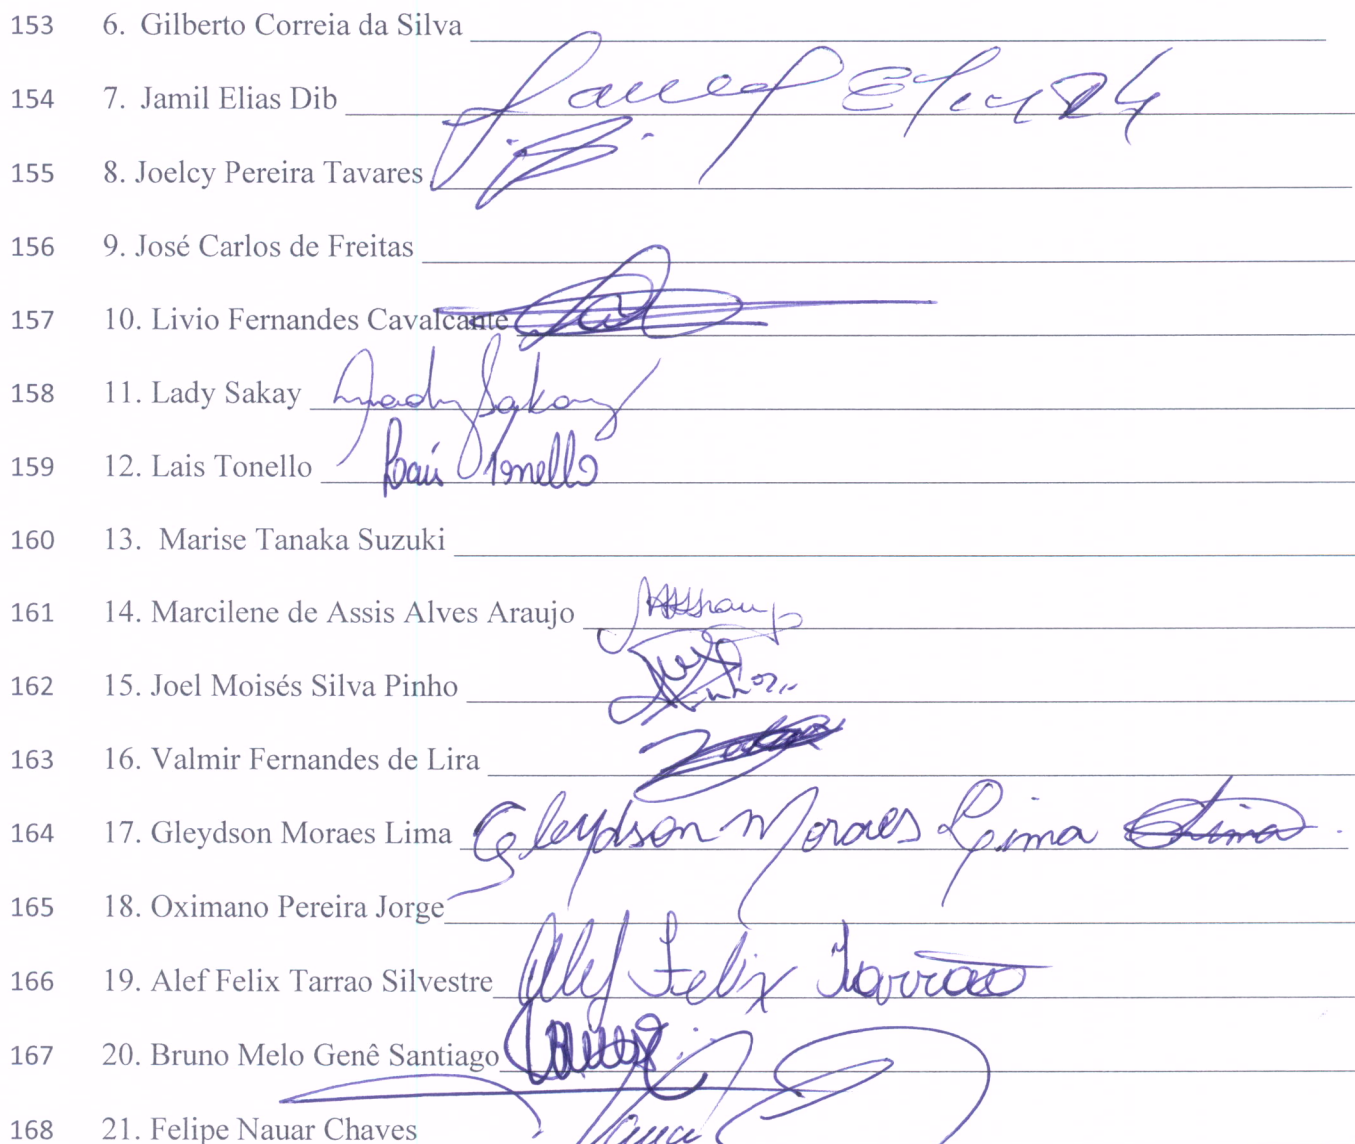 153 6. Gilberto Correia da Silva
154 7. Jamil Elias Dib Jamil Elias Dib
155 8. Joelcy Pereira Tavares
156 9. José Carlos de Freitas
157 10. Livio Fernandes Cavalcante
158 11. Lady Sakay Lady Sakay
159 12. Lais Tonello Lais Tonello
160 13. Marise Tanaka Suzuki
161 14. Marcilene de Assis Alves Araujo
162 15. Joel Moisés Silva Pinho
163 16. Valmir Fernandes de Lira
164 17. Gleydson Moraes Lima Gleydson Moraes Lima Lima
165 18. Oximano Pereira Jorge
166 19. Alef Felix Tarrao Silvestre Alef Felix Tarrão
167 20. Bruno Melo Genê Santiago
168 21. Felipe Nauar Chaves